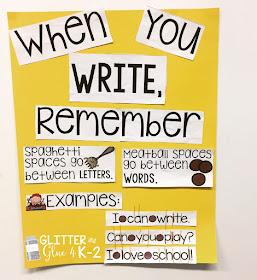 When You
WRITE,
Remember
Spaghetti
spaces go
between LETTERS.
Meatball spaces
go between
WORDS.
Examples:
I can write.
Can you play?
I love school!
GLITTER and
Glue 4 K-2